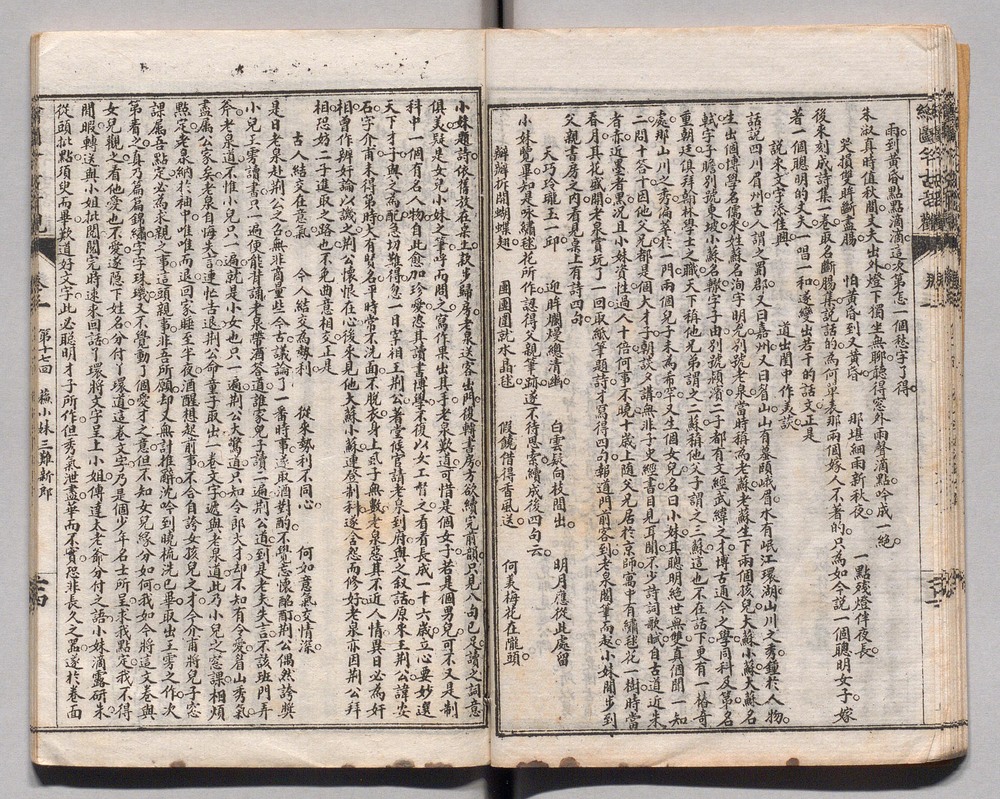 繪圖今古奇觀
雨到黃昏點點滴滴這次第怎一個愁字了得
朱淑真時值秋間丈夫出外燈下獨坐無聊聽得窗外雨聲滴點吟成一絕
哭損雙眸斷盡腸 怕黃昏到又黃昏 那堪細雨新秋夜 一點殘燈伴夜長
後來刻成詩集一卷取名斷腸集說話的為何單表那兩個嫁人不著的只為如今說一個聰明女子嫁
著一個聰明的丈夫一唱一和遂變出若干的話文正是
說來文字添佳興 道出閨中作美談
話說四川眉州古人謂之蜀郡又曰嘉州又曰眉山山有蟇頤峨眉水有岷江環湖山川之秀鍾於人物
生出個博學名儒來姓蘇名洵字明允別號老泉當時稱為老蘇老蘇生下兩個孩兒大蘇小蘇大蘇名
軾字子瞻別號東坡小蘇名轍字子由別號潁濱二子都有文經武緯之才博古通今之學同科及第名
重朝廷俱拜翰林學士之職天下稱他兄弟謂之二蘇稱他父子謂之三蘇這也不在話下更有一樁奇
處那山川之秀偏萃於一門兩個兒子未為希罕又生個女兒名曰小妹其聰明絕世無雙真個聞一知
二問十答十因他父兄都是個大才子朝談夕講無非子史經書目見耳聞不少詩詞歌賦自古道近朱
者赤近墨者黑況且小妹資性過人十倍何事不曉十歲上隨父兄居於京師寓中有繡毬花一樹時當
春月其花盛開老泉賞玩了一回取紙筆題詩才寫得四句報道門前客到老泉閣筆而起小妹閒步到
父親書房之內看見桌上有詩四句
天巧玲瓏玉一邱 迎眸爛熳總清幽 白雲疑向枝間出 明月應從此處留
小妹覽畢知是咏繡毬花所作認得父親筆跡遂不待思索續成後四句云
瓣瓣折開蝴蝶翅 團團圍就水晶毬 假饒借得香風送 何羨梅花在隴頭
小妹題詩依舊放在桌上款步歸房老泉送客出門復轉書房方欲續完前韻只見八句已足讀之詞意
俱美疑是女兒小妹之筆呼而問之寫作果出其手老泉歎道可惜是個女子若是個男兒可不又是制
科中一個有名人物自此愈加珍愛恣其讀書博學不復以女工督之看看長成一十六歲立心要妙選
天下才子與之為配急切難得忽一日宰相王荊公著堂候官請老泉到府與之敘話原來王荊公諱安
石字介甫未得第時大有賢名平時常不洗面不脫衣身上虱子無數老泉惡其不近人情異日必為奸
相曾作辨奸論以譏之荊公懷恨在心後來見他大蘇小蘇連登制科遂舍怨而修好老泉亦因荊公拜
相恐妨二子進取之路也不免曲意相交正是
古人結交在意氣 今人結交為勢利 從來勢利不同心 何如意氣交情深
是日老泉赴荊公之召無非商量些今古議論了一番時事遂取酒對酌不覺忘懷酩酊荊公偶然誇獎
小兒王雱讀書只一遍便能背誦老泉帶酒答道誰家兒子讀兩遍荊公道到是老夫失言不該班門弄
斧老泉道不惟小兒只一遍就是小女也只一遍荊公大驚道只知令郎大才却不知有令愛眉山秀氣
盡屬公家矣老泉自悔失言連忙告退荊公命童子取出一卷文字遞與老泉道此乃小兒之窗課相煩
點定老泉納於袖中唯唯而退回家睡至半夜酒醒想起前事不合自誇女孩兒之才今介甫將兒子窗
課屬吾點定必為求親之事這頭親事非吾所願却又無計推辭沈吟到曉梳洗已畢取出王雱之作次
第看之真乃篇篇錦繡字字珠璣又不覺動了個愛才之意但不知女兒緣分如何我如今將這文卷與
女兒觀之看他愛也不愛遂隱下姓名分付丫環道這卷文字乃是個少年名士所呈求我點定我不得
閒暇轉送與小姐批閱閱完時速來回話丫環將文字呈上小姐傳達太老爺分付之語小妹滴露研朱
從頭批點須臾而畢歎道好文字此必聰明才子所作但秀氣泄盡華而不實恐非長久之器遂於卷面
第十七回 蘇小妹三難新郎